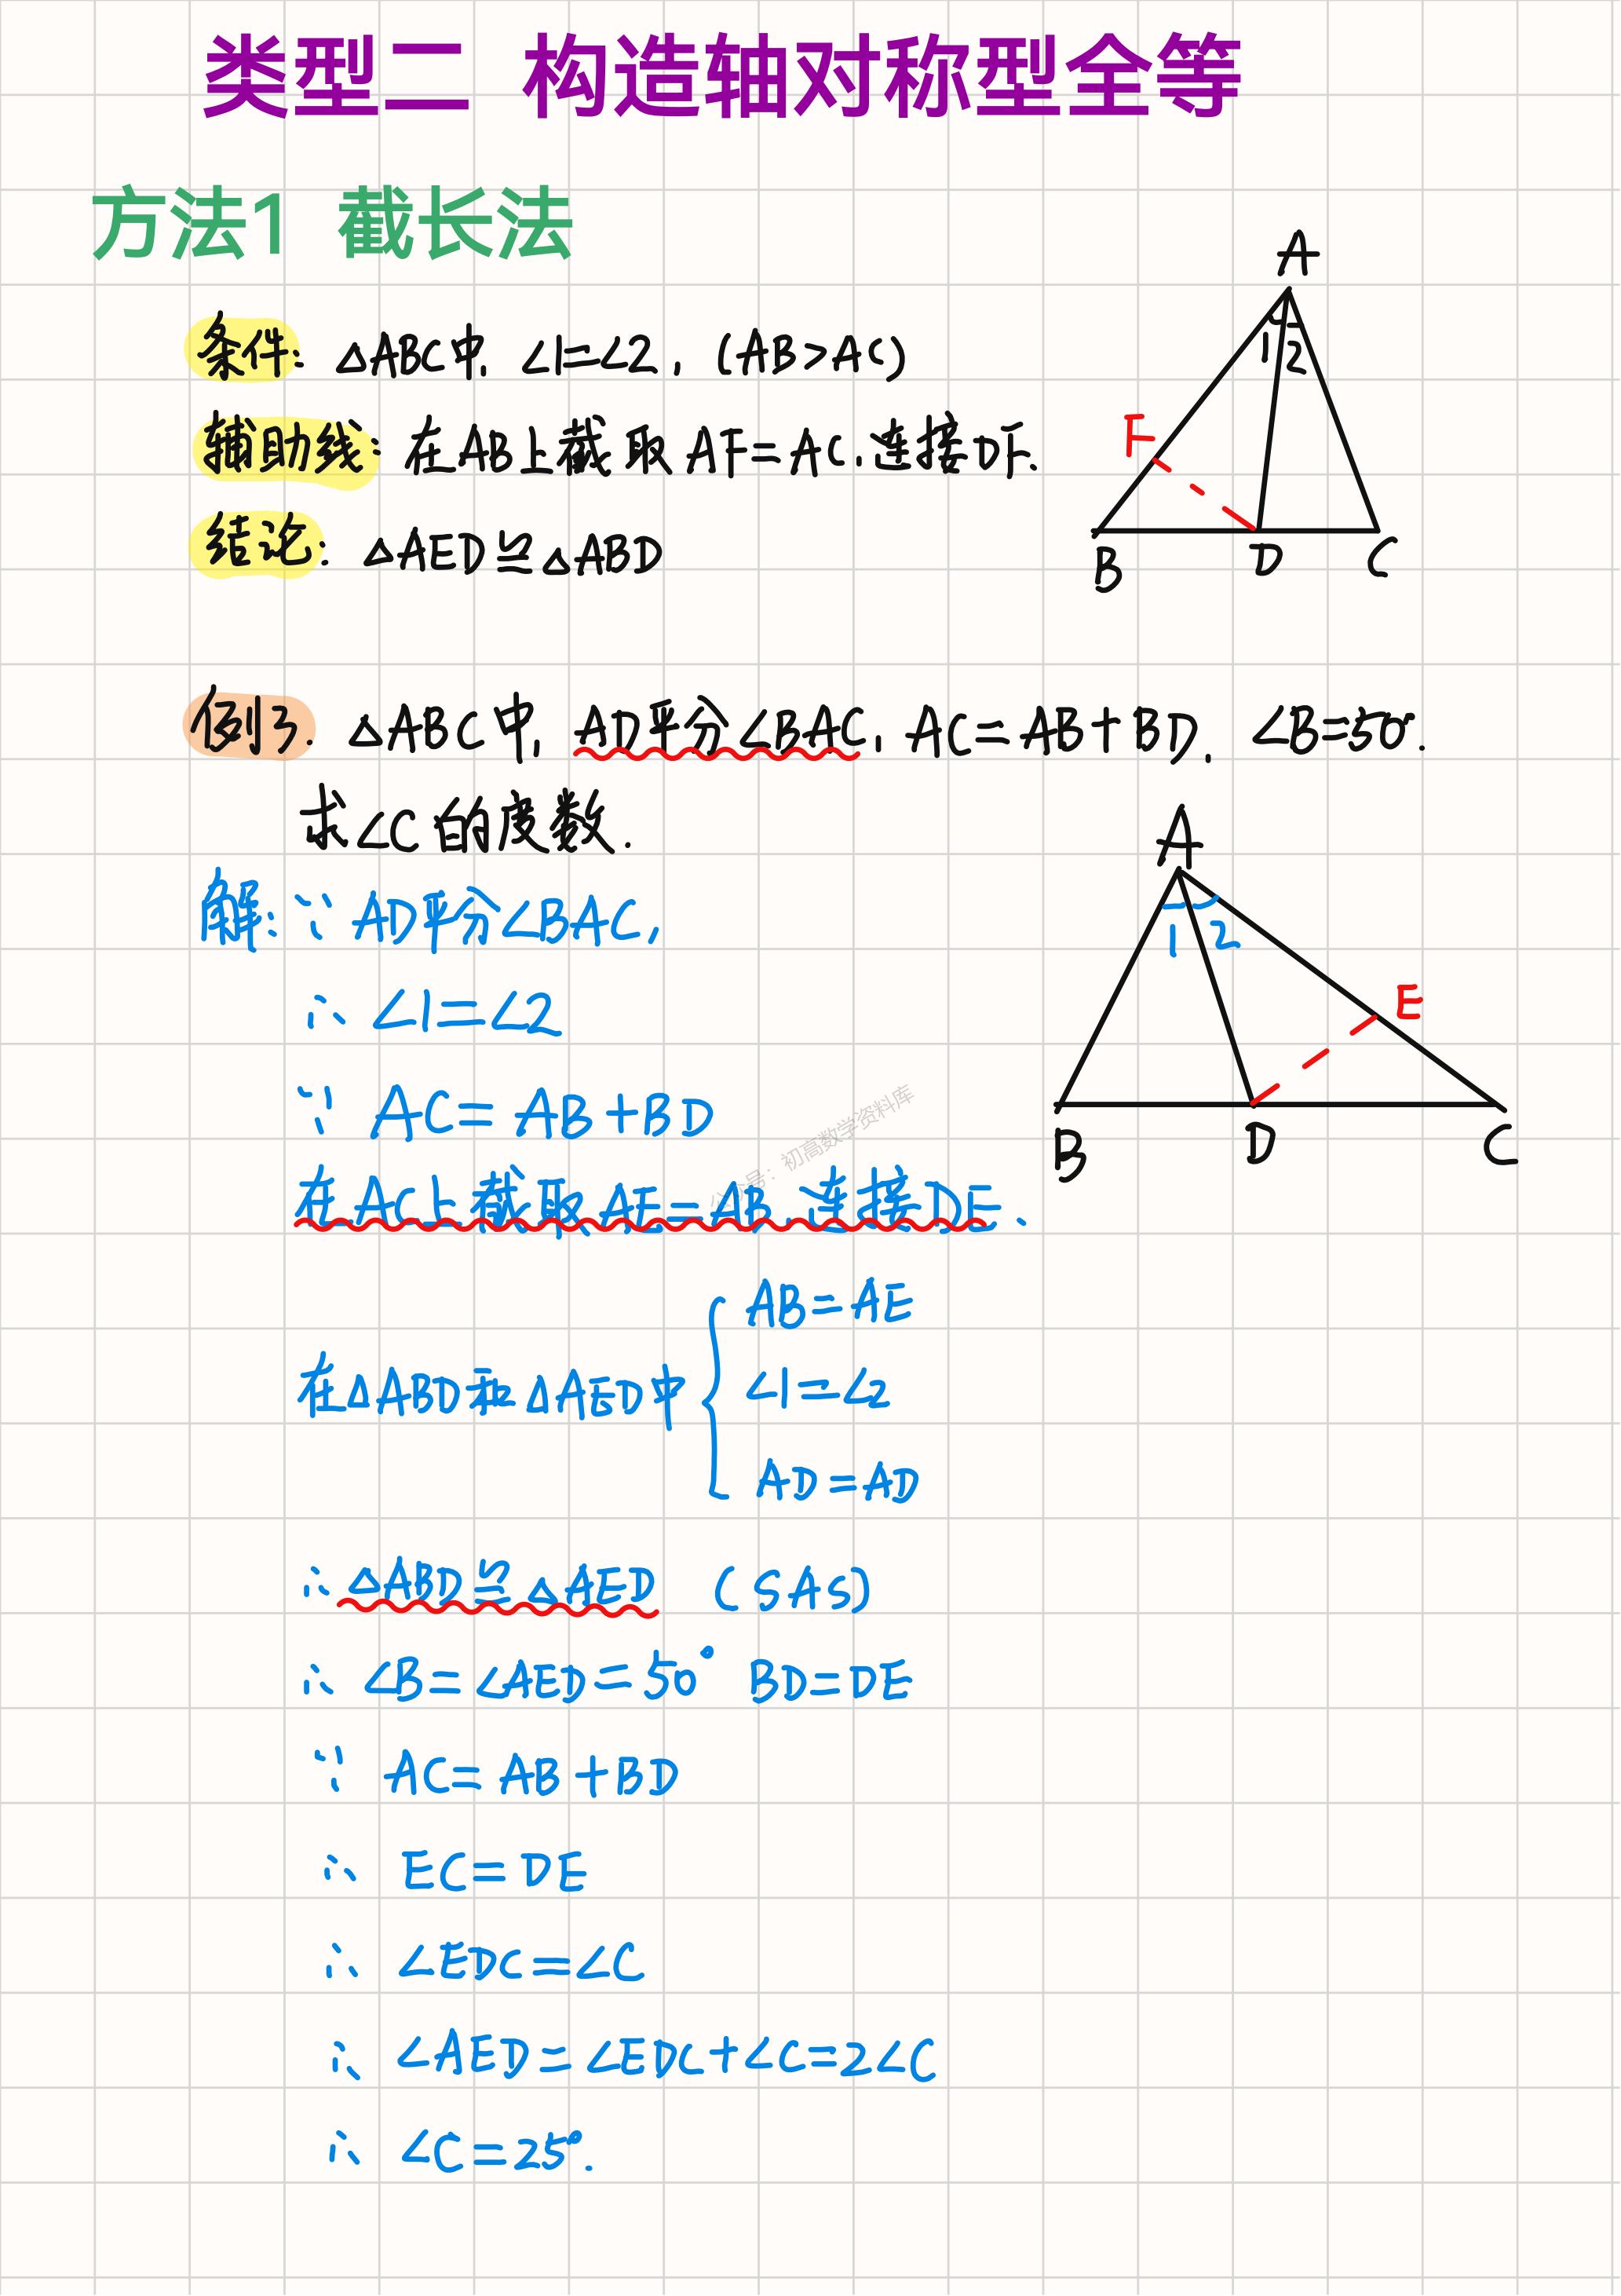 类型二 构造轴对称型全等
方法1 截长法
条件: △ABC中, ∠1=∠2, (AB>AC)
辅助线: 在AB上截取AF=AC, 连接DF.
结论: △AED≌△ABD
A
1 2
F
B D C
例3. △ABC中, AD平分∠BAC, AC=AB+BD, ∠B=50°.
求∠C的度数.
A
1 2
E
B D C
解: ∵ AD平分∠BAC,
∴ ∠1=∠2
∵ AC=AB+BD
在AC上截取AE=AB, 连接DE.
在△ABD和△AED中
AB=AE
∠1=∠2
AD=AD
∴ △ABD≌△AED (SAS)
∴ ∠B=∠AED=50° BD=DE
∵ AC=AB+BD
∴ EC=DE
∴ ∠EDC=∠C
∴ ∠AED=∠EDC+∠C=2∠C
∴ ∠C=25°.
公众号：初高数学资料库